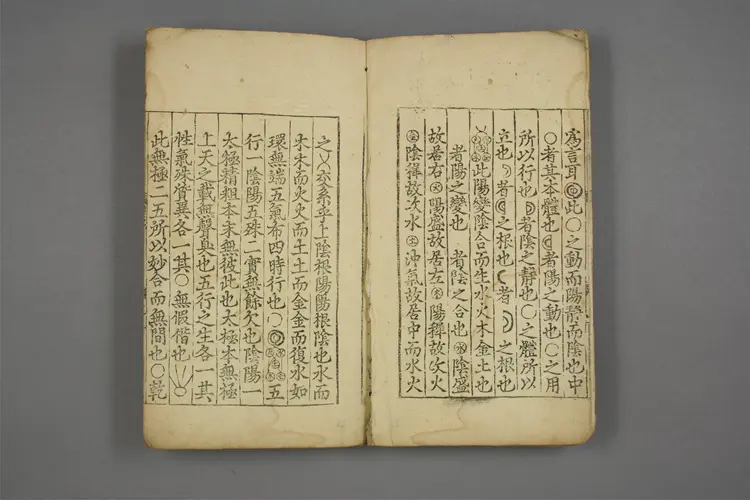 為言耳◉此○之動而陽靜而陰也中
○者其本體也◑者陽之動也○之用
所以行也◐者陰之靜也○之體所以
立也☽者◐之根也☾者◑之根也
此陽變陰合而生水火木金土也
者陽之變也 者陰之合也㊌陰盛
故居右㊋陽盛故居左㊍陽穉故次火
㊎陰穉故次水㊏沖氣故居中而水火
之㐅交系乎上陰根陽陽根陰也水而
木木而火火而土土而金金而復水如
環無端五氣布四時行也○◉五
行一陰陽五殊二實無餘欠也陰陽一
太極精粗本末無彼此也太極本無極
上天之載無聲臭也五行之生各一其
性氣殊質異各一其○無假借也
此無極二五所以妙合而無間也○乾